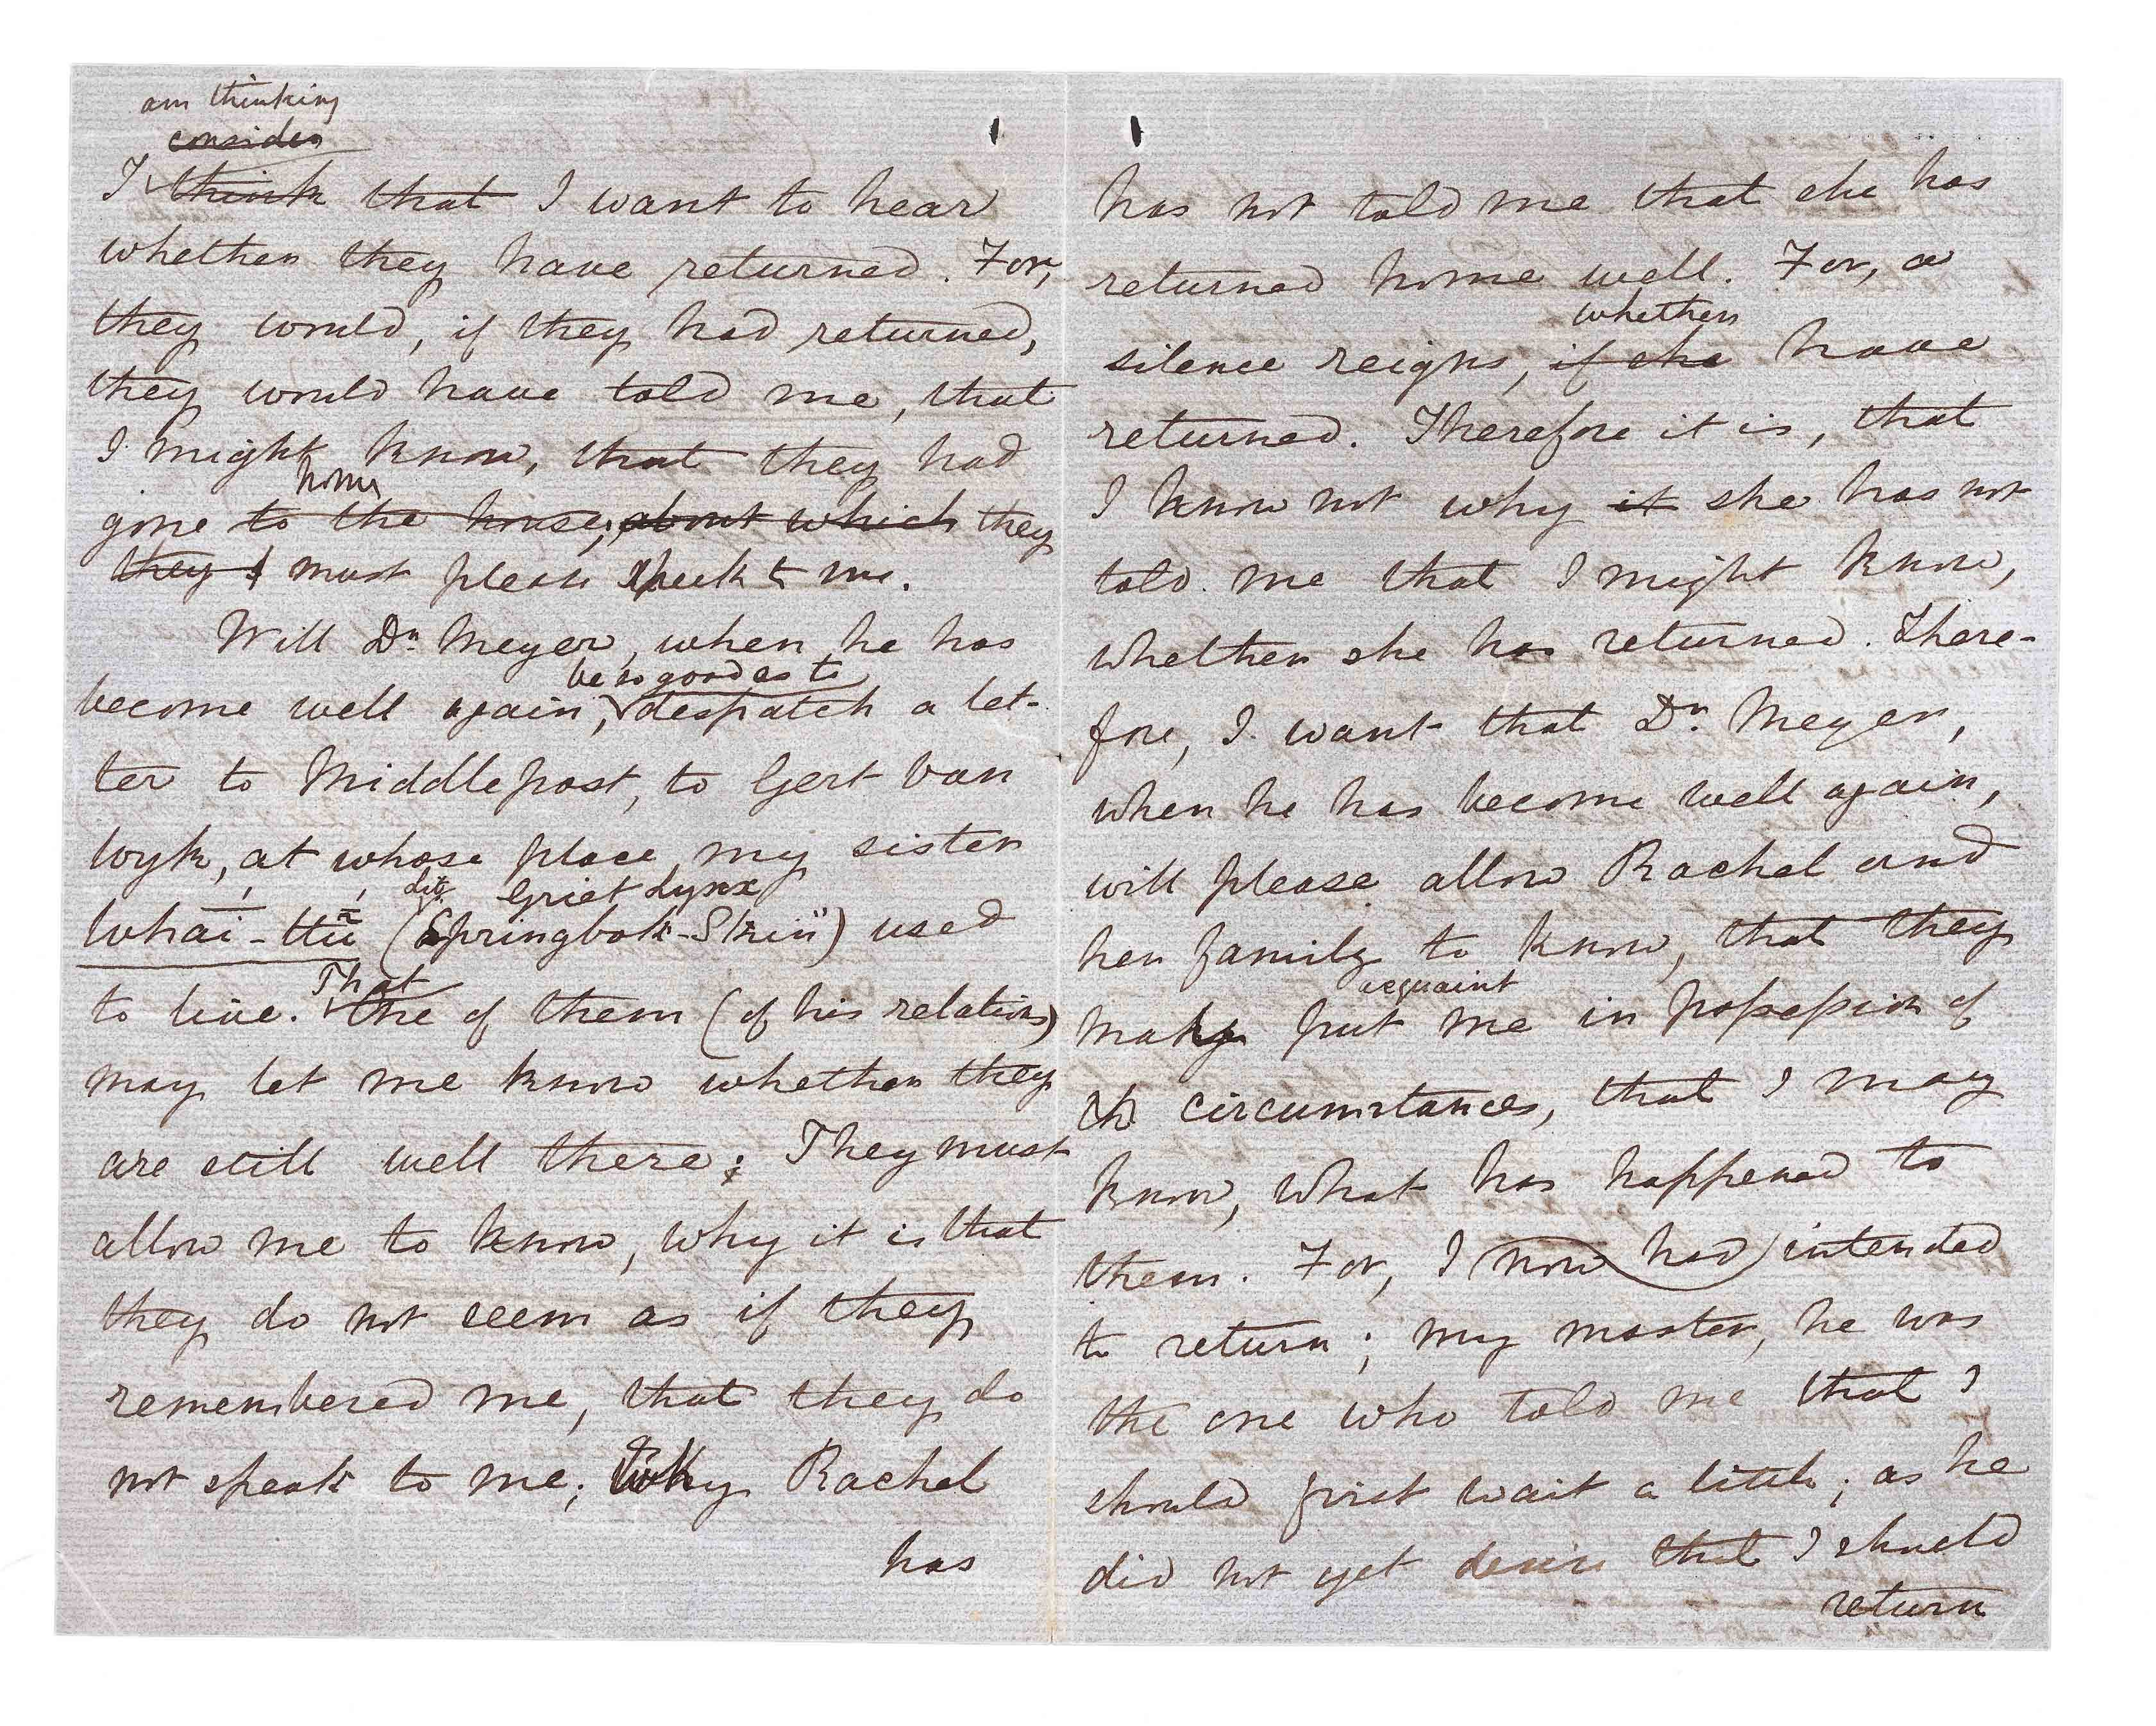 am thinking
consider
I think that I want to hear
whether they have returned. For,
they would, if they had returned,
they would have told me, that
I might know, that they had
home
gone to the house, about which they
they must please speak to me.
Will Dr. Meyer, when he has
be so good as to
become well again, despatch a let-
ter to Middlepost, to Gert van
Wyk, at whose place my sister
lit. Griet Lynx
Whai-ttu (Springbok-Skin") used
That
to live. The of them (of his relations)
may let me know whether they
are still well there; They must
allow me to know, why it is that
they do not seem as if they
remembered me, that they do
not speak to me; Why Rachel
has
has not told me that she has
returned home well. For, a
whether
silence reigns, if she have
returned. Therefore it is, that
I know not why it she has not
told me that I might know,
whether she has returned. There-
fore, I want that Dr. Meyer,
when he has become well again,
will please allow Rachel and
her family to know, that they
acquaint
may put me in possession of
circumstances, that I may
know, what has happened to
them. For, I now had intended
to return; my master, he was
the one who told me that I
should first wait a little; as he
did not yet desire that I should
return